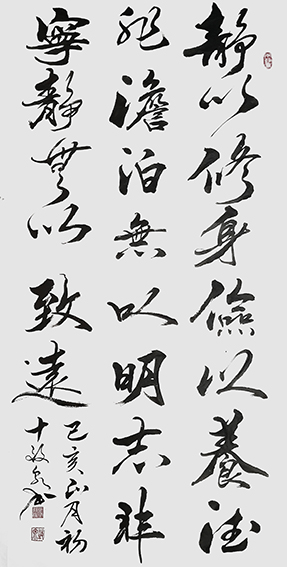 靜以修身儉以養德
非澹泊無以明志非
寧靜無以致遠
己亥正月初
十